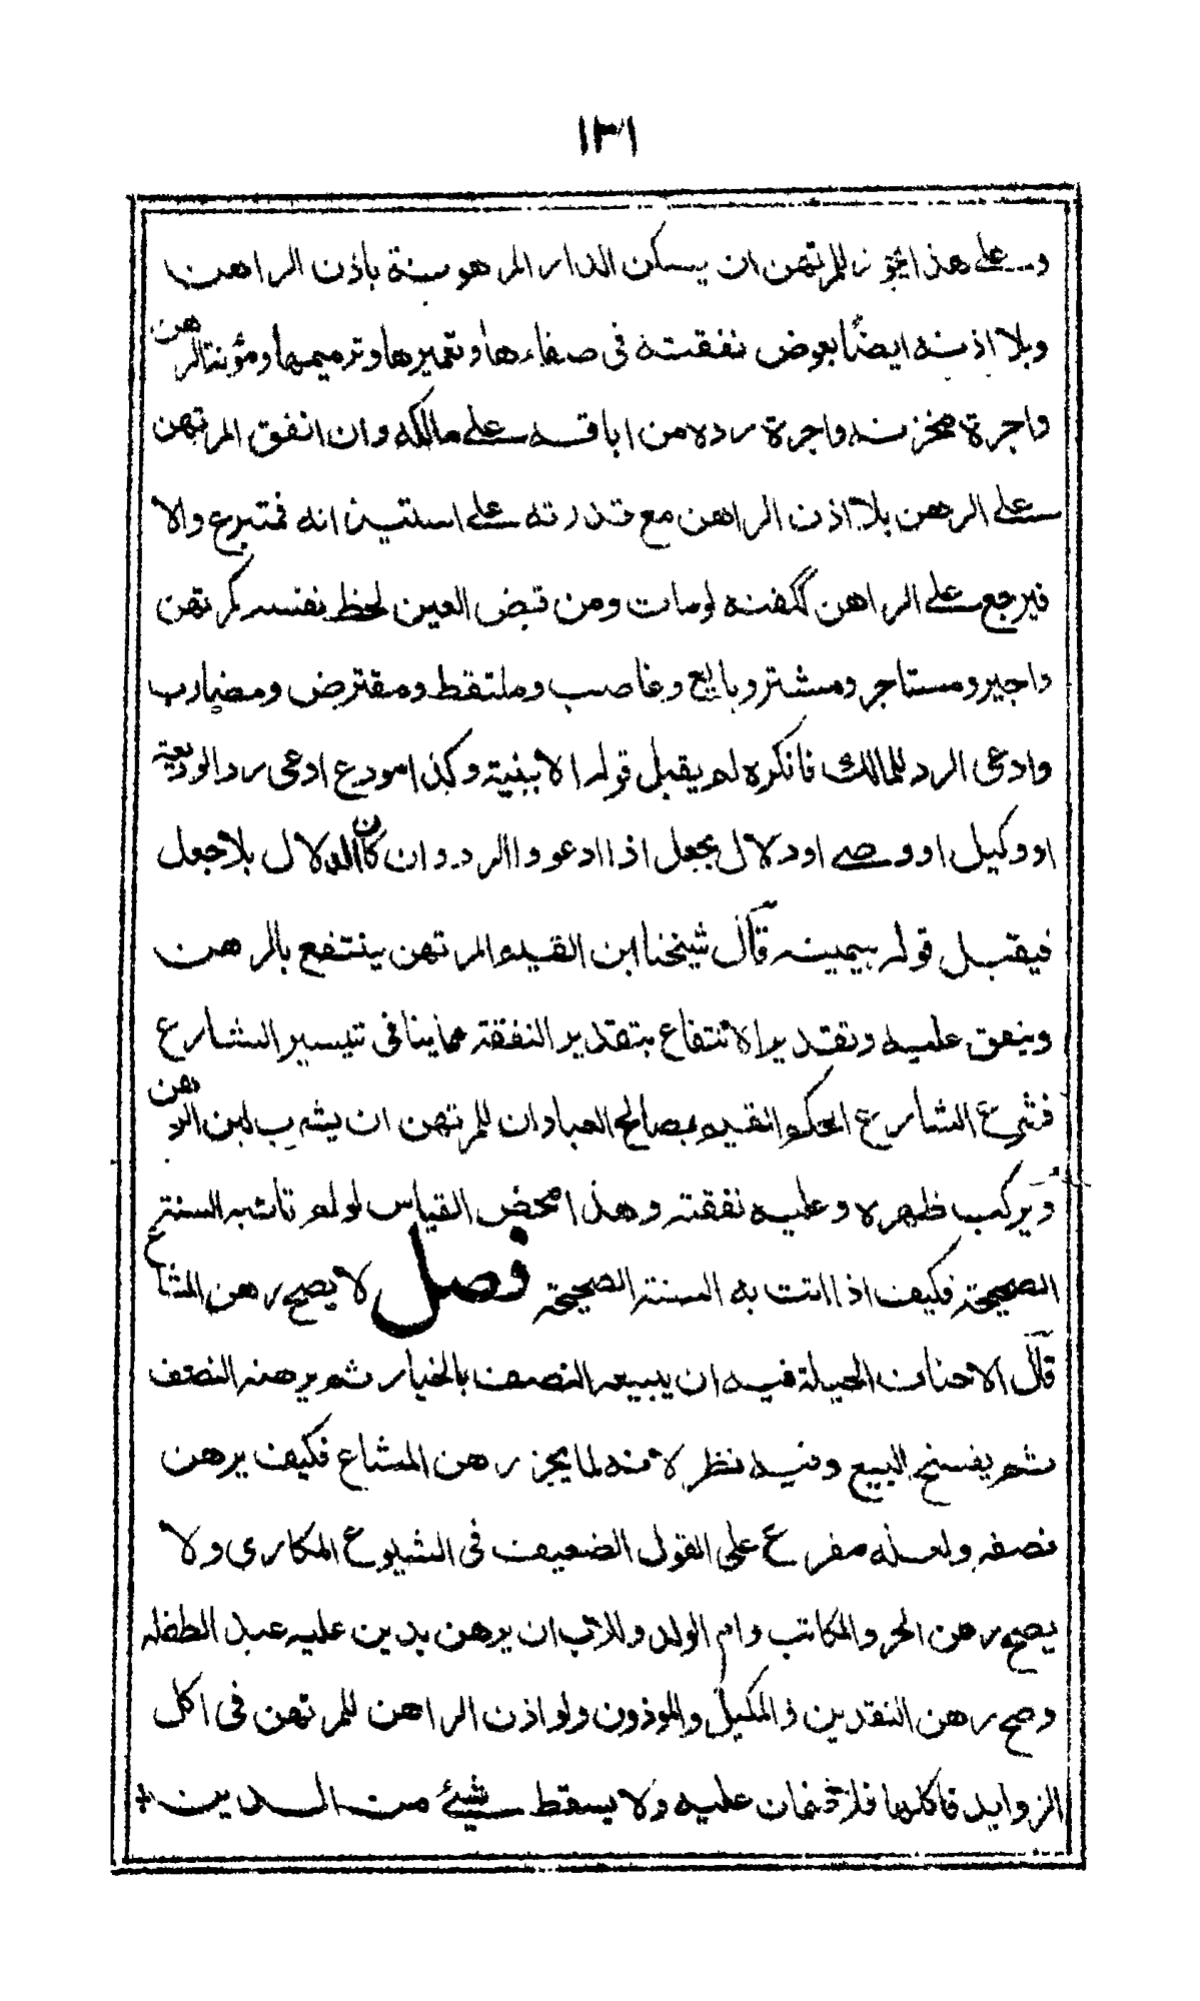 ١٣١
وعلى هذا يجوز للمرتهن ان يسكن الدار المرهونة باذن الراهن
وبلا اذنه ايضًا بعوض نفقته في صفاءها وتعميرها وترميمها ومؤنة الرهن
واجرة مخزنه واجرة رده من اباقه على مالكه وان انفق المرتهن
على الرهن بلا اذن الراهن مع قدرته على استيذانه فمتبرع والا
فيرجع على الراهن ككفنه لومات ومن قبض العين لحظ نفسه كمرتهن
واجير ومستاجر ومشتر وبايع وغاصب وملتقط ومقترض ومضارب
وادعى الرد للمالك فانكره لم يقبل قوله الا ببنية وكذا مودع ادعى رد الوديعة
او وكيل او وصي او دلال بجعل اذا ادعوا الرد وان كان الدلال بلا جعل
فيقبل قوله بيمينه قال شيخنا ابن القيم المرتهن ينتفع بالرهن
وينفق عليه وتقدير الانتفاع بتقدير النفقة مما ينافى تيسير الشارع
فشرع الشارع الحكم القيم بمصالح العباد ان للمرتهن ان يشرب لبن الرهن
ويركب ظهره وعليه نفقته وهذا محض القياس لو لم تأت به السنة
الصحيحة فكيف اذا اتت به السنة الصحيحة فصل لا يصح رهن المشاع
قال الاحناف الحيلة فيه ان يبيعه النصف بالخيار ثم يرهنه النصف
ثم يفسخ البيع وفيه نظر لانه لما يجز رهن المشاع فكيف يرهن
نصفه ولعله مفرع على القول الضعيف في الشيوع المكارى ولا
يصح رهن الحر والمكاتب وام الولد وللاب ان يرهن بدين عليه عبد الطفله
وصح رهن النقدين والمكيل والموذون ولو اذن الراهن للمرتهن في اكل
الزوايد فاكلها فلا ضمان عليه ولا يسقط شيئ من الدين